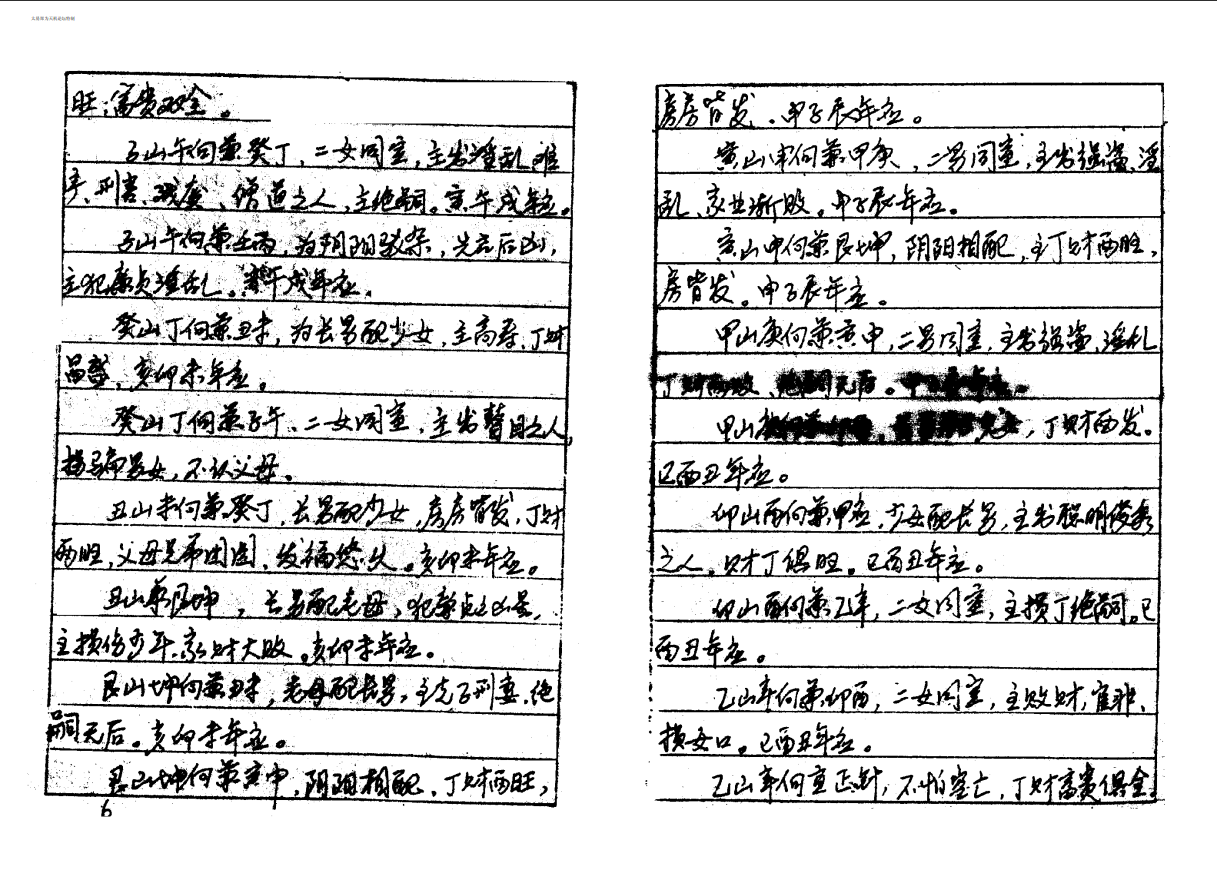 旺，富贵双全。
子山午向兼癸丁，二女同室，主发淫乱，难
产、刑害、残废、僧道之人，主绝嗣。寅午戌年应。
子山午向兼壬丙，为阴阳驳杂，先吉后凶，
主犯廉贞淫乱。寅午戌年应。
癸山丁向兼丑未，为长男配少女，主高寿，丁财
昌盛，亥卯未年应。
癸山丁向兼子午、二女同室，主发瞽目之人，
拐骗男女，不认父母。
丑山未向兼癸丁，长男配少女，房房皆发，丁财
两旺，父母兄弟团圆，发福悠久。亥卯未年应。
丑山兼艮坤，长男配老母，犯廉贞之凶星，
主损伤少年，家财大败。亥卯未年应。
艮山坤向兼丑未，老母配长男，主克子刑妻、绝
嗣无后。亥卯未年应。
艮山坤向兼寅申，阴阳相配，丁财两旺，
6
房房皆发。申子辰年应。
寅山申向兼甲庚，二男同室，主发强盗、淫
乱、家业渐败。申子辰年应。
寅山申向兼艮坤，阴阳相配，主丁财两旺，
房皆发。申子辰年应。
甲山庚向兼寅申，二男同室，主发强盗、淫乱
丁财两败、绝嗣无后。
甲山，丁财两发。
巳酉丑年应。
卯山酉向兼甲庚，少女配长男，主发聪明俊秀
之人，财丁俱旺。巳酉丑年应。
卯山酉向兼乙辛，二女同室，主损丁绝嗣。巳
酉丑年应。
乙山辛向兼卯酉，二女同室，主败财，官非、
损女口。巳酉丑年应。
乙山辛向重正针，不怕空亡，丁财富贵俱全。